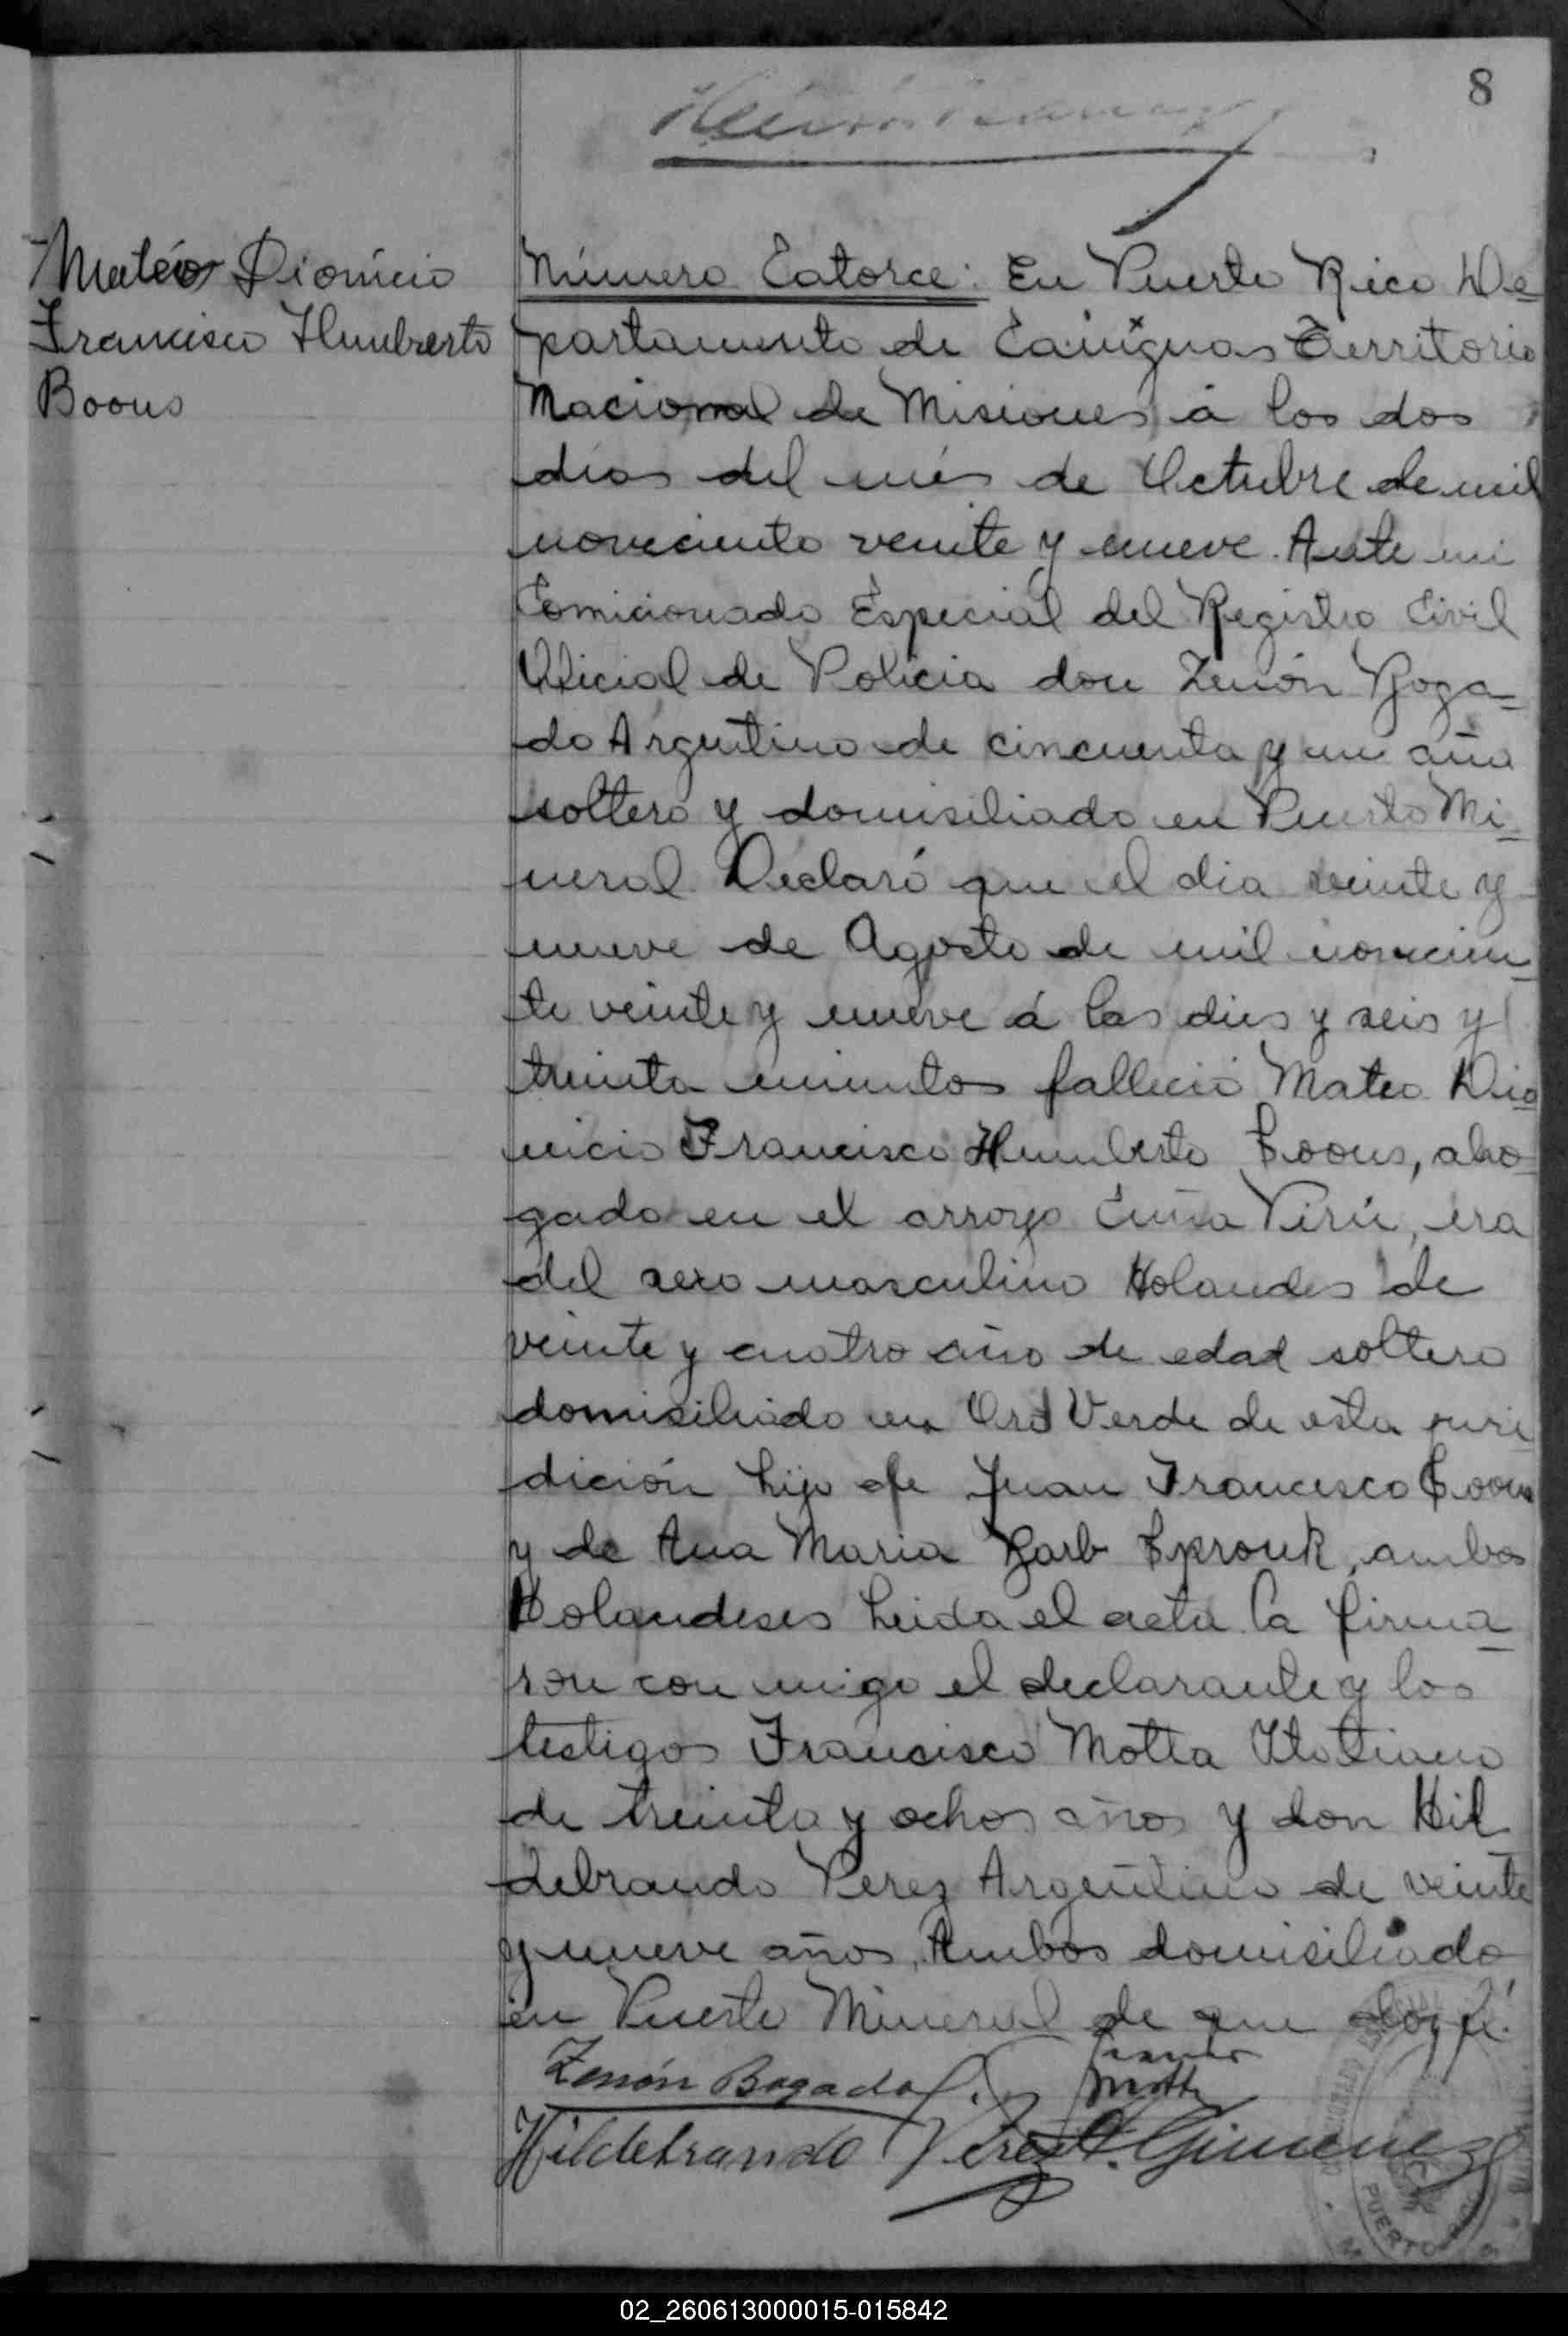 8
Mateo Dionicio
Francisco Humberto
Boons
Número Catorce: En Puerto Rico De=
partamento de Cainguas Territorio
Nacional de Misiones á los dos
días del més de Octubre de mil
noveciento veinte y nueve. Ante mi
Comicionado Especial del Registro Civil
Oficial de Policia don Zenón Boga=
do Argentino de cincuenta y un año
soltero y domisiliado en Puerto Mi=
neral Declaró que el dia veinte y
nueve de Agosto de mil novecien=
to veinte y nueve á las dies y seis y
treinta minutos fallecio Mateo Dio
nicio Francisco Humberto Boons, aho
gado en el arroyo Cuña Pirú, era
del sexo masculino Holandes de
veinte y cuatro año de edad soltero
domisiliado en Oro Verde de esta juri
dición hijo de Juan Francisco Boons
y de Ana Maria Barb Spronk, ambos
Holandeses Leida el acta la firma=
ron con migo el declarante y los
testigos Francisco Motta Italiano
de treinta y ochos años y don Hil
debrando Perez Argentino de veinte
y nueve años, Ambos domisiliado
en Puerto Mineral de que doy fé.
Zenón Bogado Motta
Hildebrando Perez Gimenez
PUERTO
02_260613000015-015842